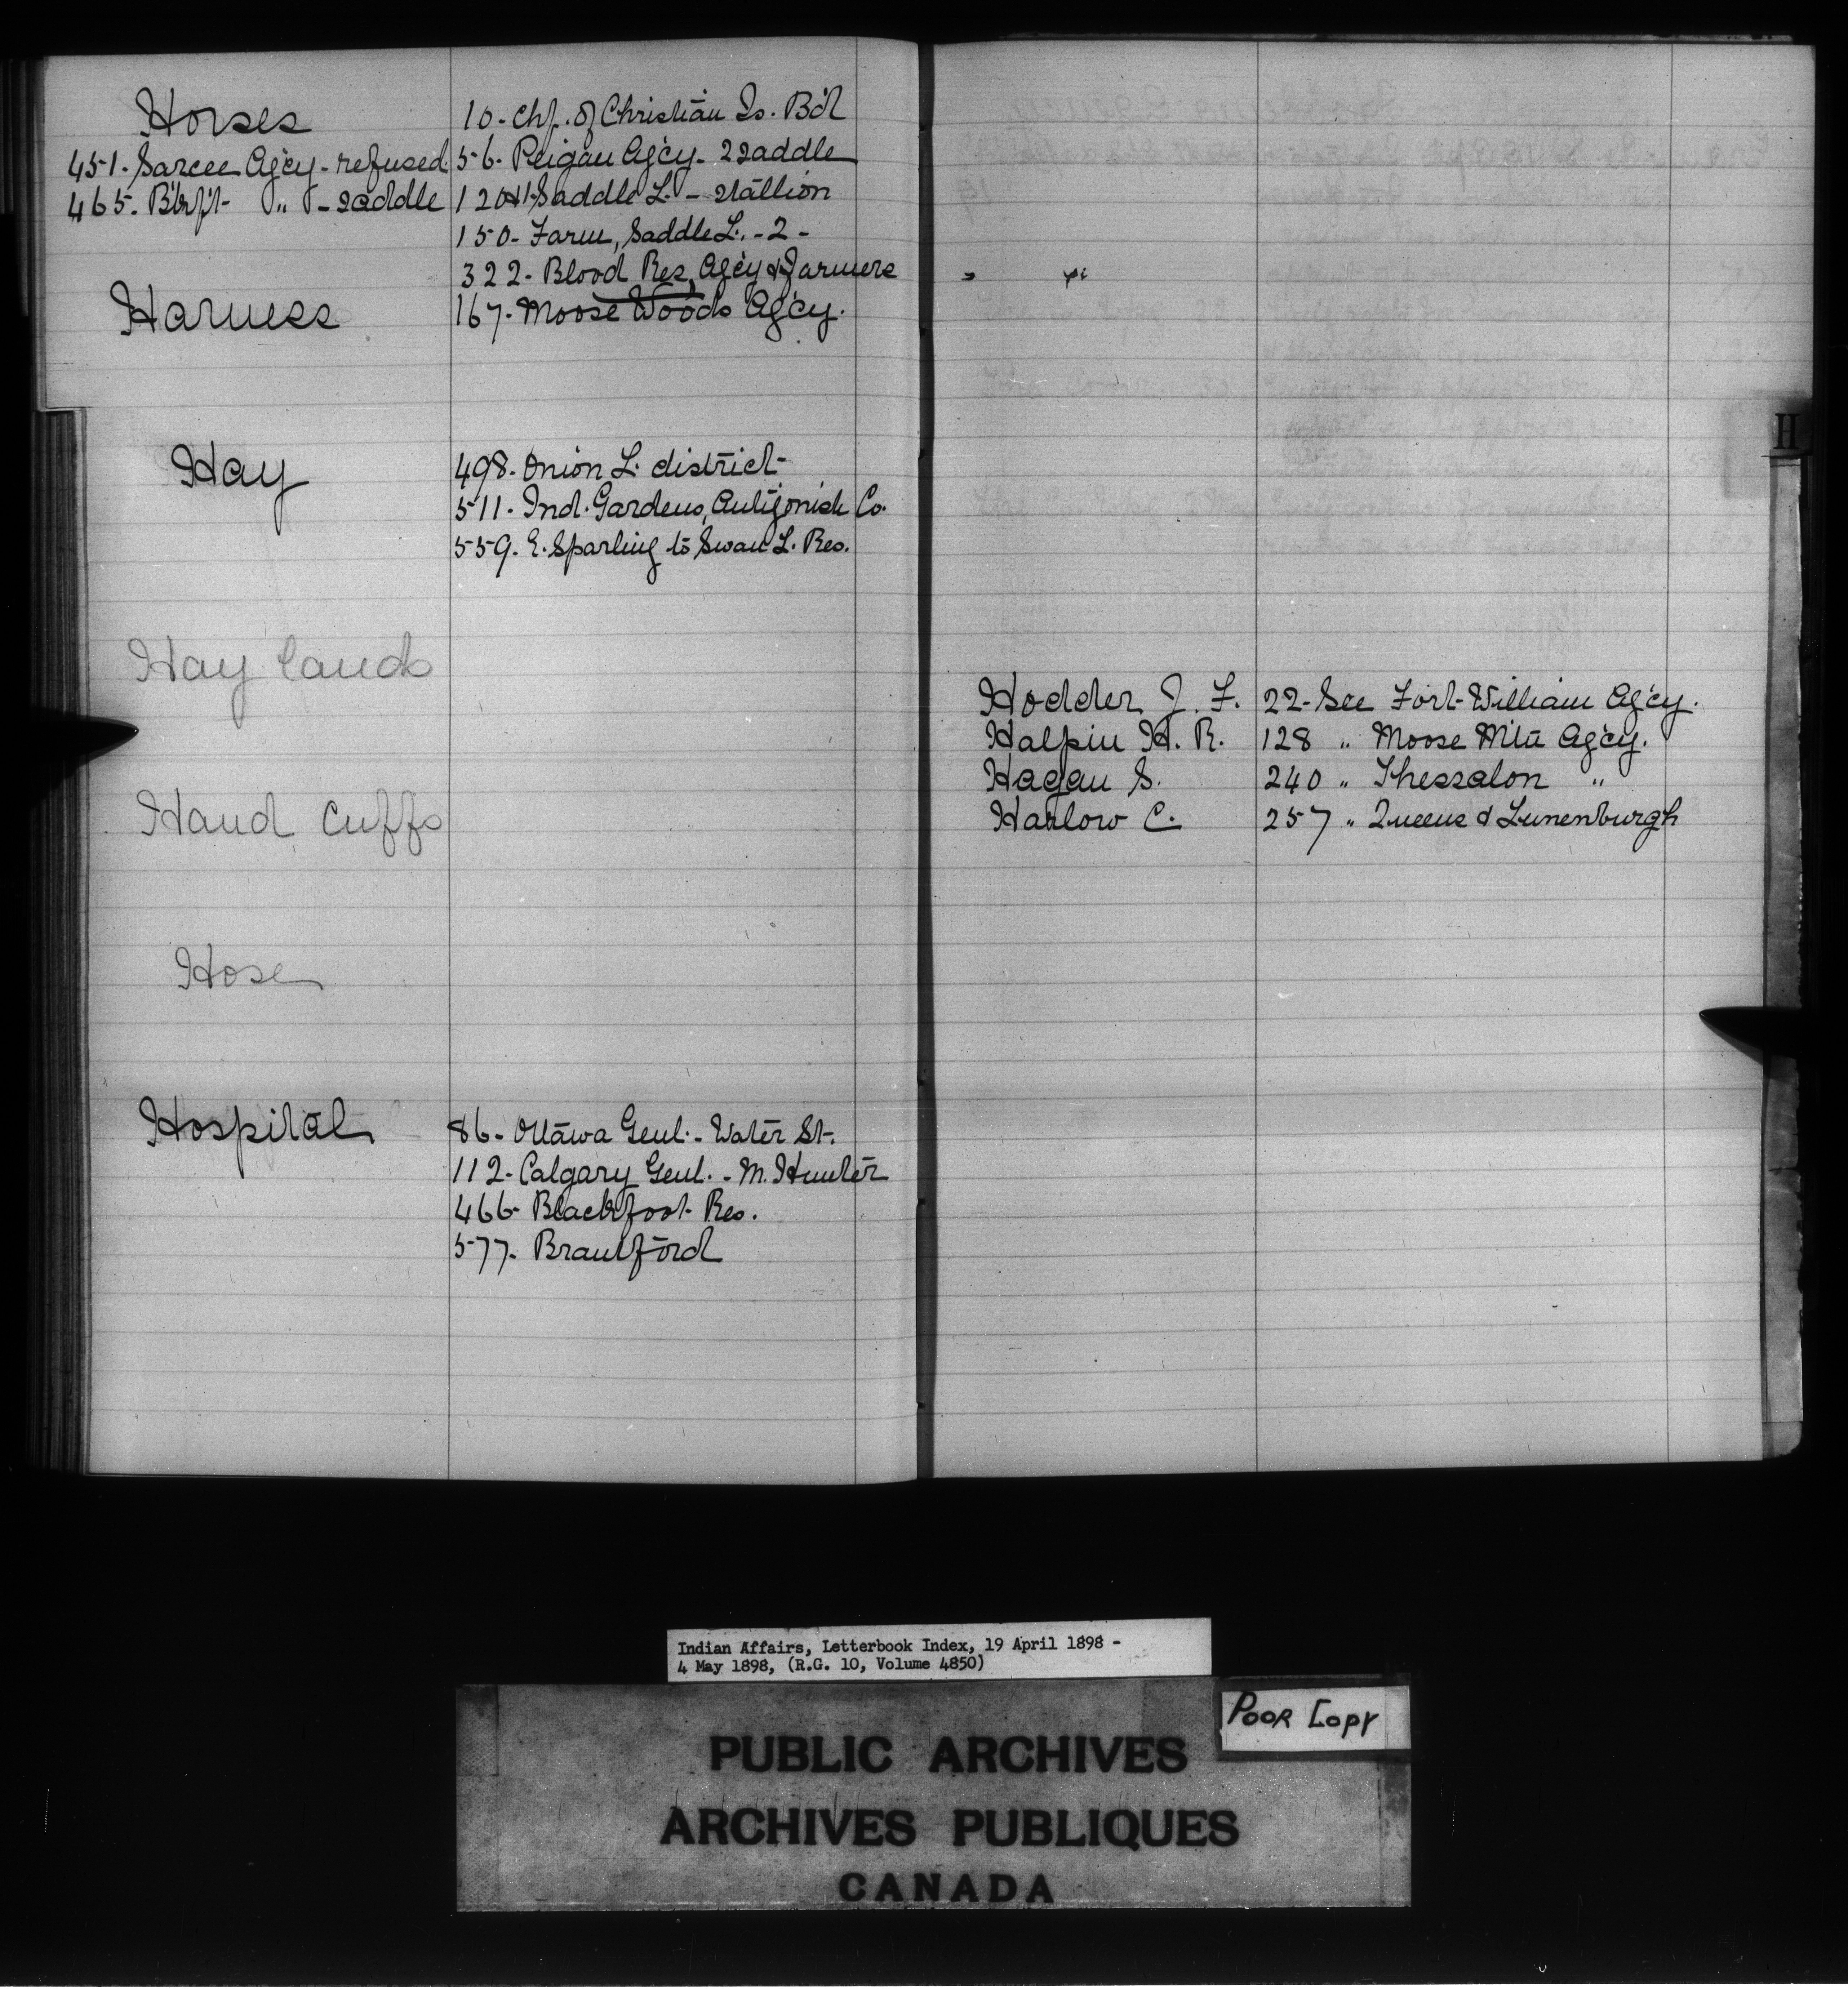 Horses
10- Chf. of Christian Is. B'd
451- Sarcee Ag'cy - refused
56- Peigan Ag'cy - 2 saddle
465- B'tl'f'd " - saddle
120 Saddle L. - stallion
150- Farm, Saddle L. - 2 -
322- Blood Res, Ag'cy & Farmers
Harness
167- Moose Woods Ag'cy.
Hay
498- Onion L. district
511- Ind. Gardens, Antigonish Co.
559- E. Sparling to Swan L. Res.
Hay lands
Hand Cuffs
Hose
Hospital
86- Ottawa Genl. - Water St.
112- Calgary Genl. - M. Hunter
466- Blackfoot Res.
577- Brantford
H
Hodder J. F. 22- See Fort William Ag'cy.
Halpin H. R. 128 " Moose Mtn Ag'cy.
Hagan S. 240 " Thessalon "
Harlow C. 257 " Queens & Lunenburgh
Indian Affairs, Letterbook Index, 19 April 1898 -
4 May 1898, (R.G. 10, Volume 4850)
POOR COPY
PUBLIC ARCHIVES
ARCHIVES PUBLIQUES
CANADA